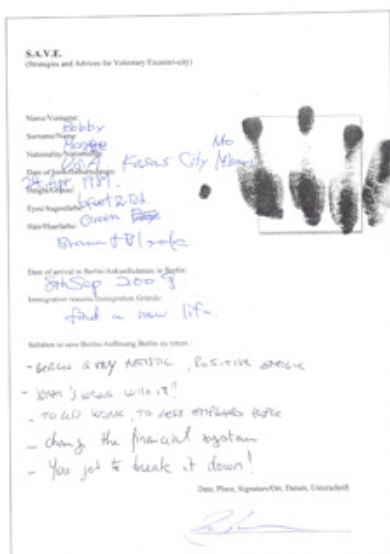 S.A.V.E.
(Strategies and Advices for Voluntary Excentri-city)
Name/Vorname:
Bobby
Surname/Name:
Mo
Nationality/
USA. City
Date of birth/Geburtsdatum:
24 Apr 1989.
Height/Grösse:
6 feet 2
Eyes/Augenfarbe:
Green
Hair/Haarfarbe:
Brown & Black
Date of arrival in Berlin/Ankunftsdatum in Berlin:
8th Sep 2009
Immigration reasons/Immigration Gründe:
find a new life.
Solution to save Berlin/Auflösung Berlin zu retten :
- BERLIN IS VERY ARTISTIC, POSITIVE
- WHAT'S WRONG WITH IT?
- TO WORK, TO LESS PEOPLE
- change the financial system
- You got to break it down!
Date, Place, Signature/Ort, Datum, Unterschrift